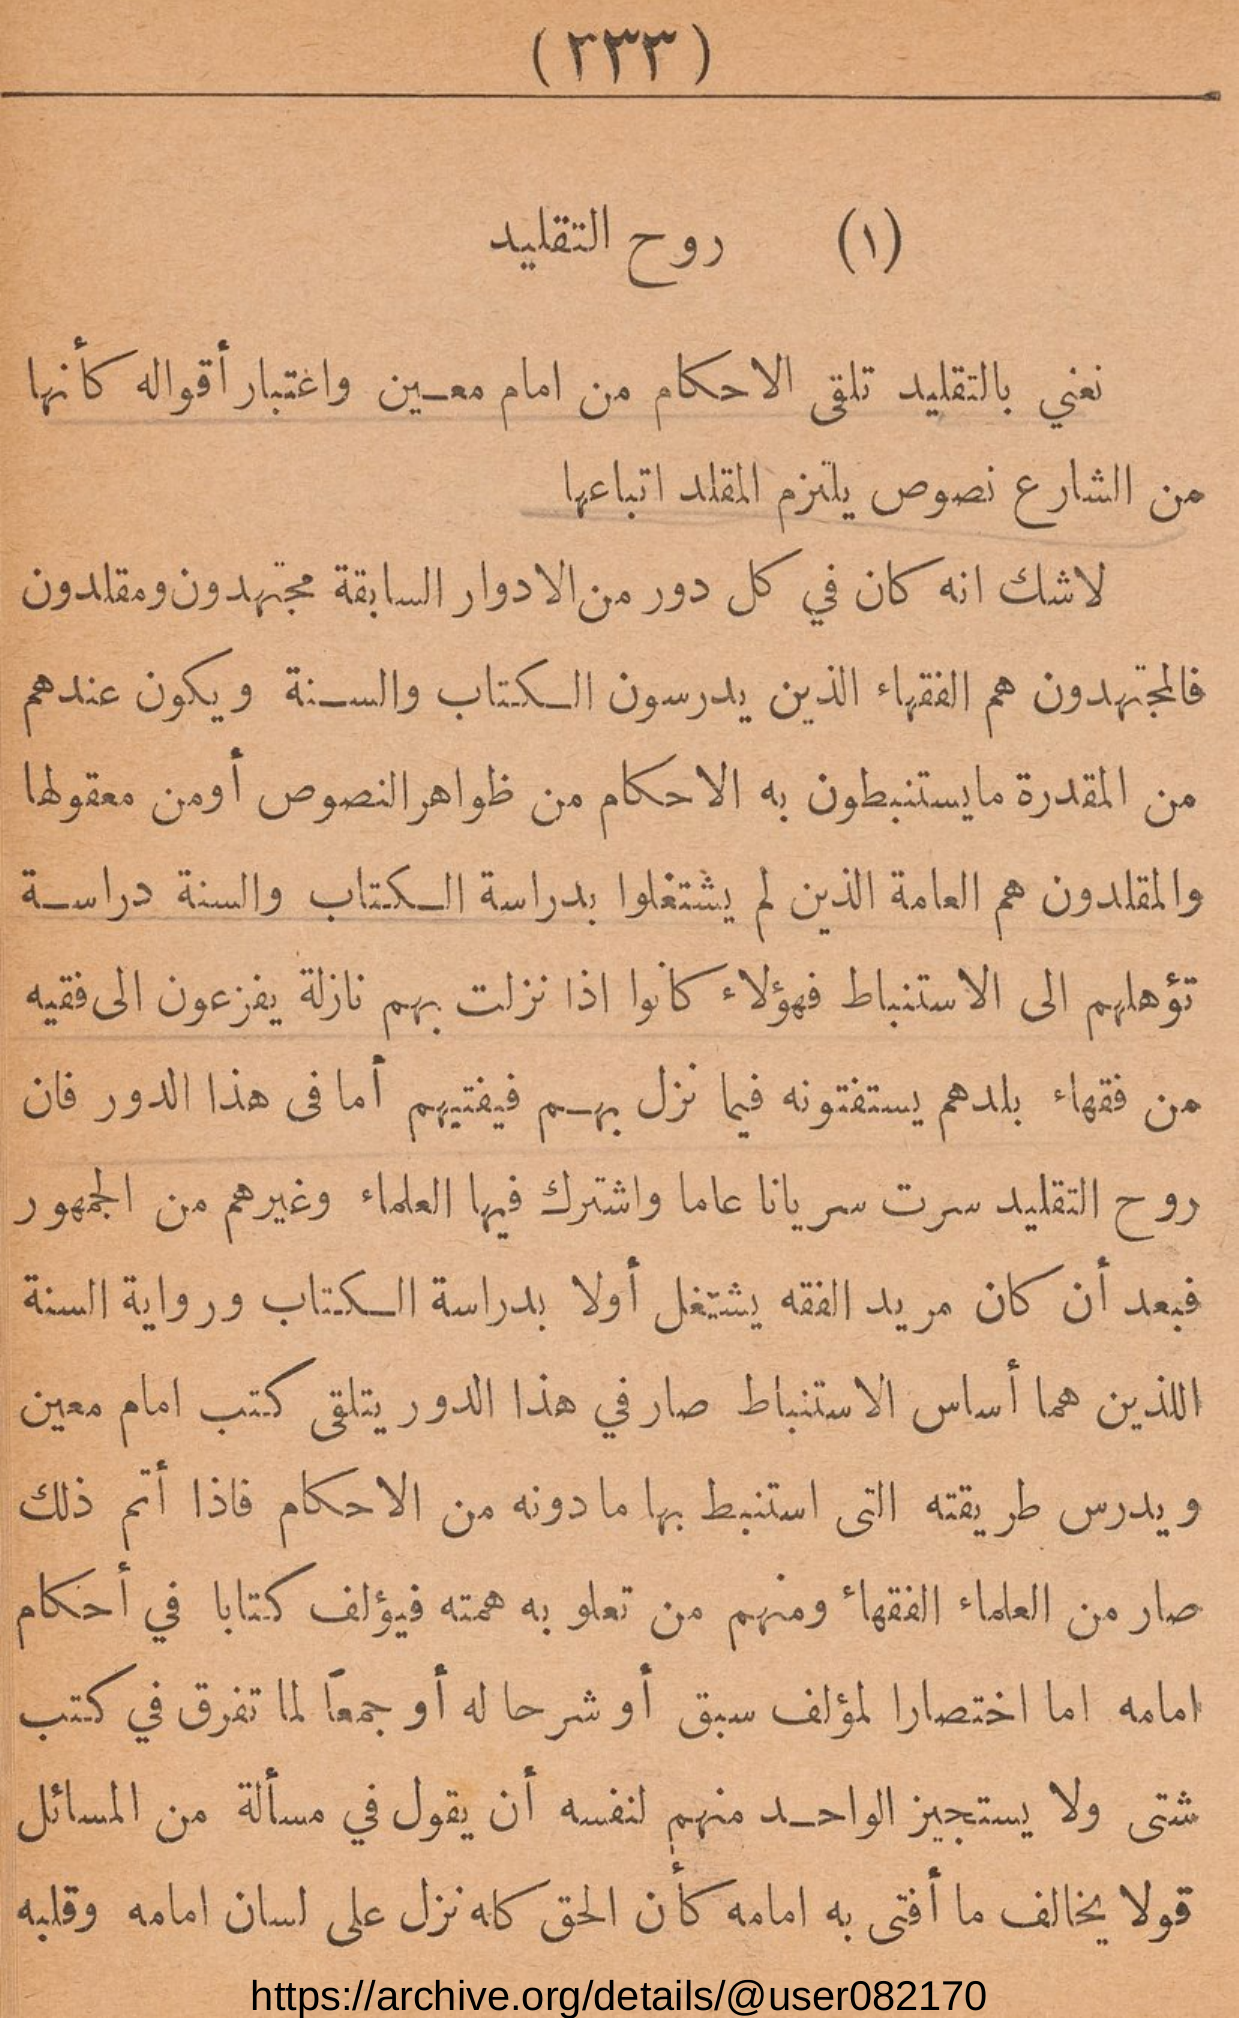 (٣٣٣)
(١) روح التقليد
نعني بالتقليد تلقى الاحكام من امام معين واغتبار أقواله كأنها
من الشارع نصوص يلتزم المقلد اتباعها
لاشك انه كان في كل دور من الادوار السابقة مجتهدون ومقلدون
فالمجتهدون هم الفقهاء الذين يدرسون الكتاب والسنة ويكون عندهم
من المقدرة مايستنبطون به الاحكام من ظواهر النصوص أومن معقولها
والمقلدون هم العامة الذين لم يشتغلوا بدراسة الكتاب والسنة دراسة
تؤهلهم الى الاستنباط فهؤلاء كانوا اذا نزلت بهم نازلة يفزعون الى فقيه
من فقهاء بلدهم يستفتونه فيما نزل بهم فيفتيهم أما فى هذا الدور فان
روح التقليد سرت سريانا عاما واشترك فيها العلماء وغيرهم من الجمهور
فبعد أن كان مريد الفقه يشتغل أولا بدراسة الكتاب ورواية السنة
اللذين هما أساس الاستنباط صار في هذا الدور يتلقى كتب امام معين
ويدرس طريقته التى استنبط بها مادونه من الاحكام فاذا أتم ذلك
صار من العلماء الفقهاء ومنهم من تعلو به همته فيؤلف كتابا في أحكام
امامه اما اختصارا لمؤلف سبق أو شرحا له أو جمعاً لما تفرق في كتب
شتى ولا يستجيز الواحد منهم لنفسه أن يقول في مسألة من المسائل
قولا يخالف ما أفتى به امامه كأن الحق كله نزل على لسان امامه وقلبه
https://archive.org/details/@user082170